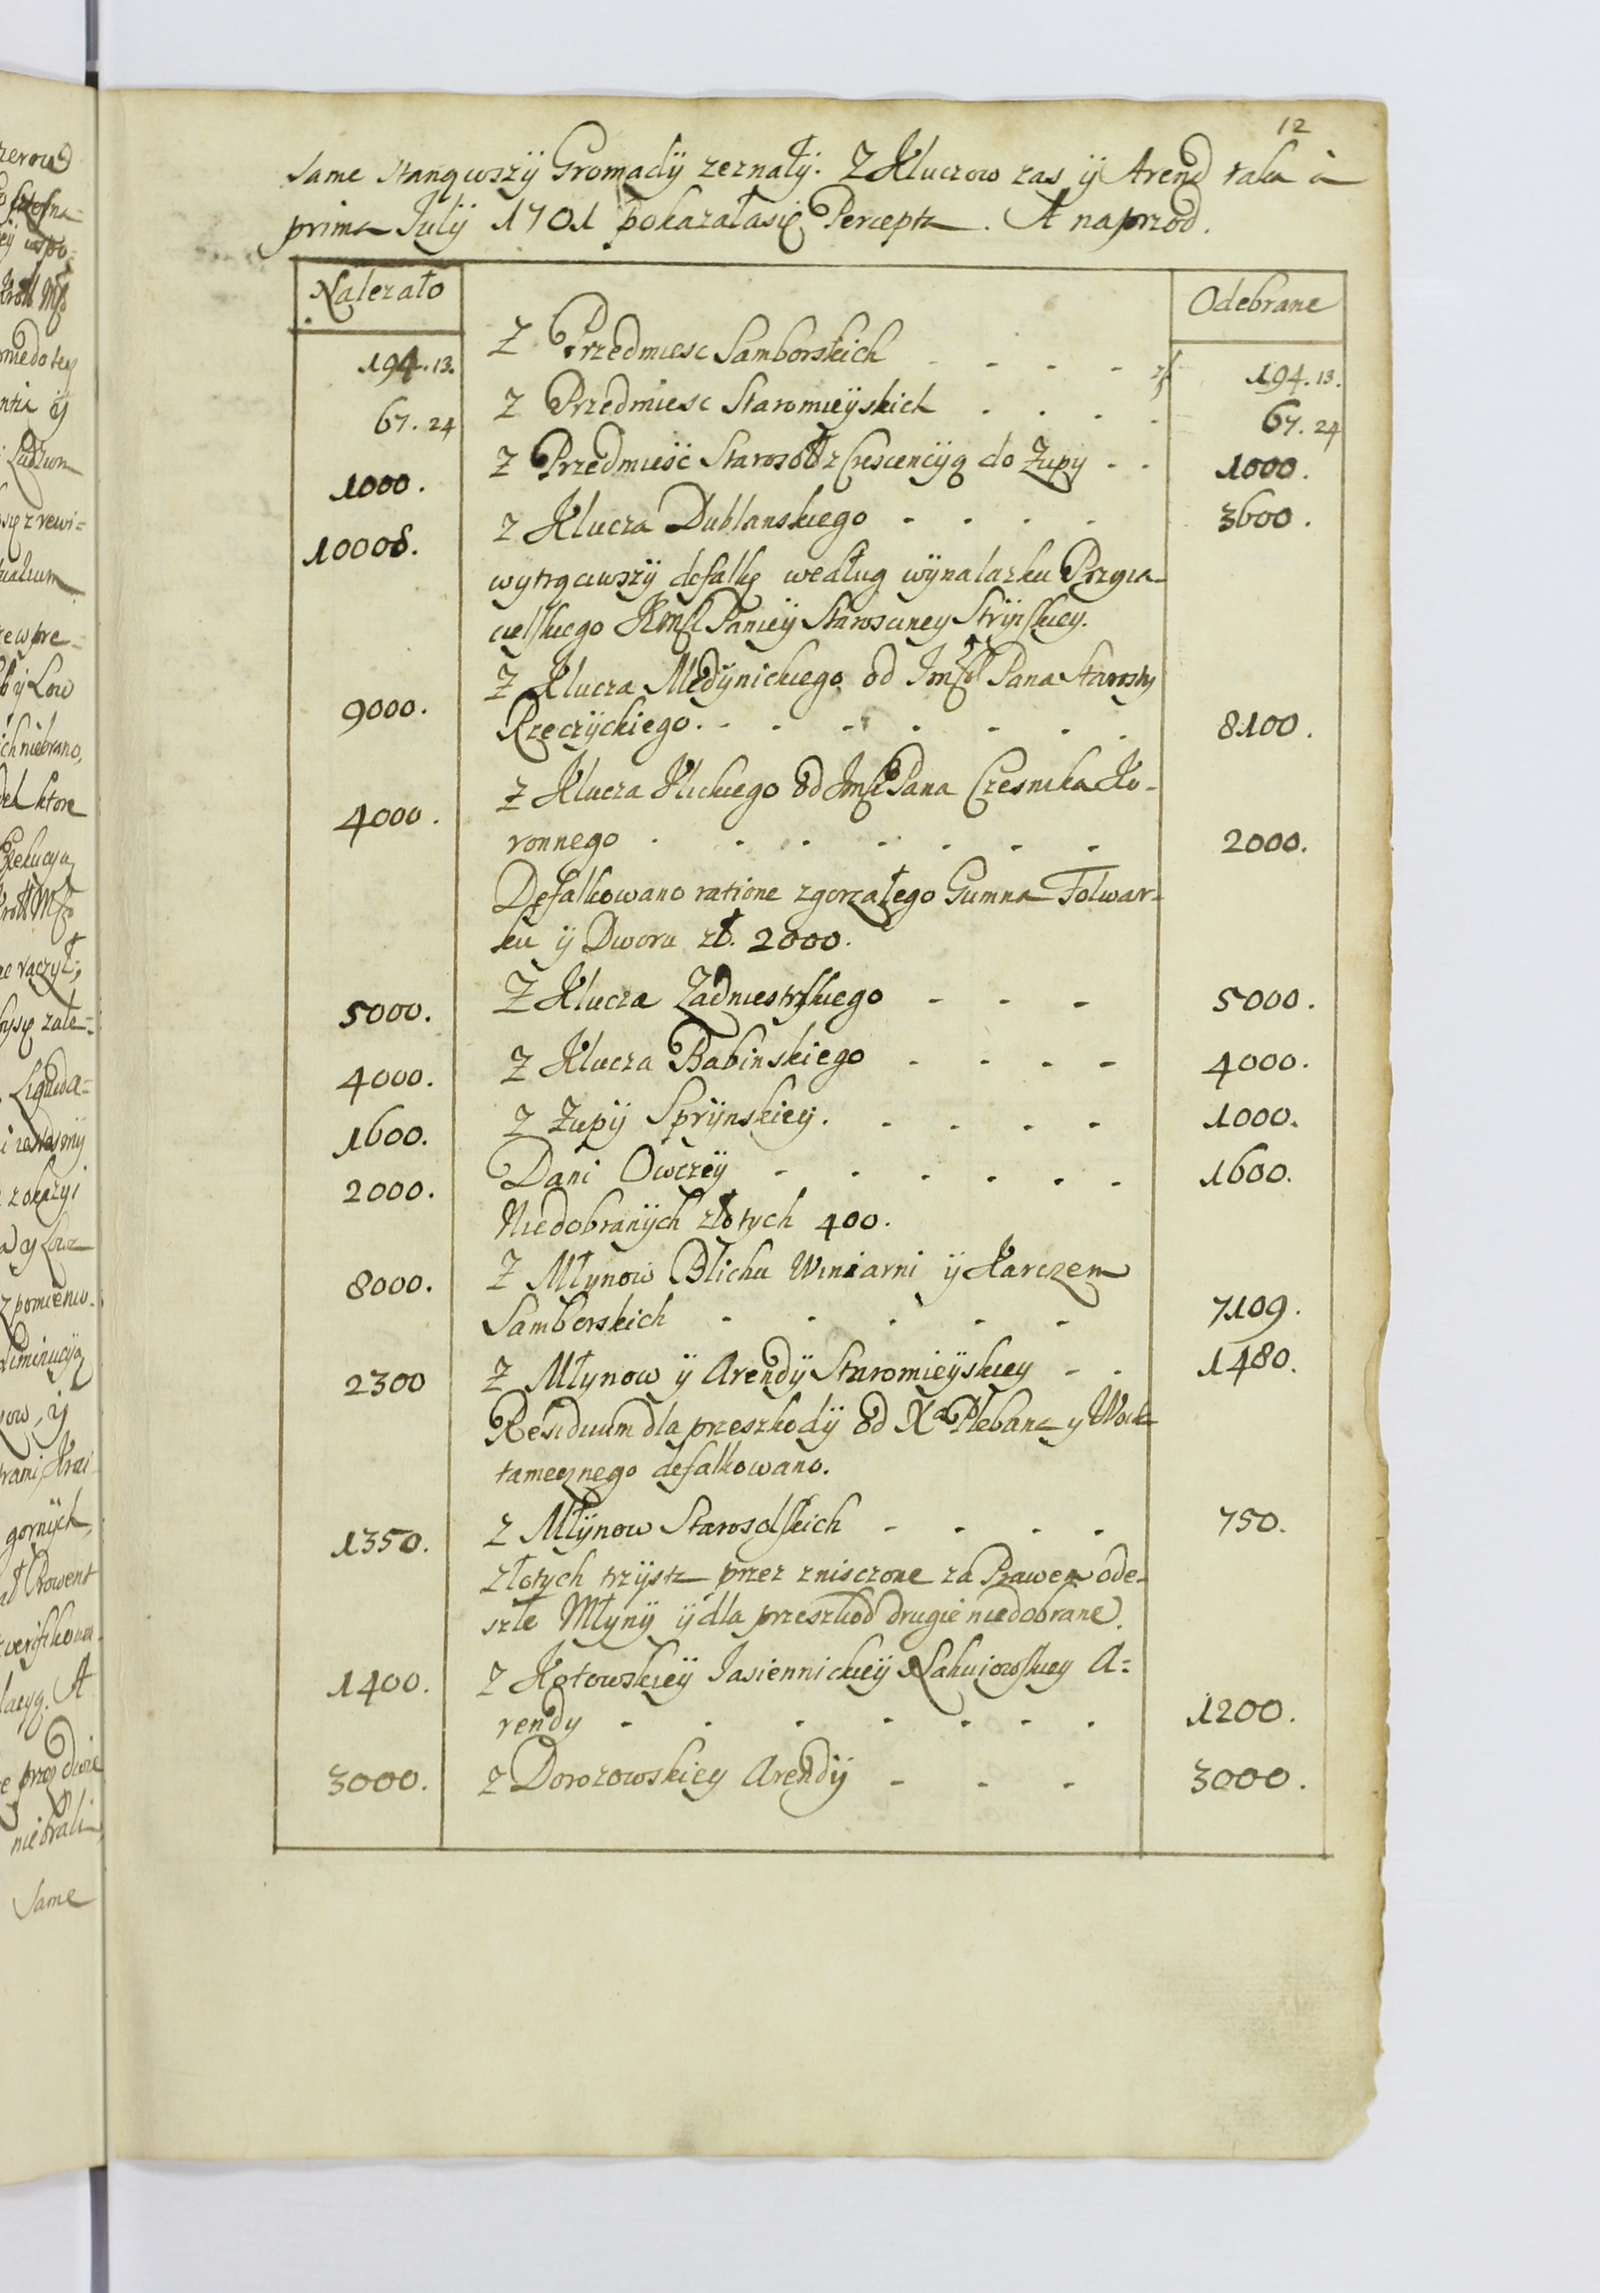 12
same stanąwszÿ Gromadÿ zeznałÿ. Z Kluczow zas ÿ Arend taka à
prima Julÿ 1701 pokazałasię Percepta. A naprzod.
Należało
Odebrane
194.13. Z Przedmiesc Samborskich - - - - zł 194.13.
67.24 Z Przedmiesc Staromieÿskich . . . . 67.24
1000. Z Przedmieść Starosol z Crescencÿą do Żupÿ . . 1000.
10000. z Klucza Dublanskiego - - - - 3600.
wytrąciwszÿ defalkę według wÿnalazku Przyia-
cielskiego Jmsci Panieÿ Starosciney Strÿiskiey.
9000. Z Klucza Medÿnickiego od Jmsci Pana Starosty
Rzeczÿckiego. - - - - - - - 8100.
4000. Z Klucza Klickiego od Jmsci Pana Czesnika Ko-
ronnego . - - - - - - 2000.
Defalkowano ratione zgorzałego Gumna Folwar-
ku ÿ Dworu zł. 2000.
5000. Z Klucza Zadniestrskiego - - - 5000.
4000. Z Klucza Babinskiego - - - - 4000.
1600. Z Żupÿ Sprÿnskiey. - - - - 1000.
2000. Dani Owczeÿ - - - - - - 1600.
Niedobranÿch złotych 400.
8000. Z Młynow Blichu Winiarni ÿ Karczem
Samborskich - - - - - 7109.
2300 Z Młynow ÿ Arendÿ Staromieÿskiey - - 1480.
Residuum dla przeszkodÿ od Xa Plebana y Woita
tamecznego defalkowano.
1350. Z Młÿnow Starosolskich - - - - 750.
złotych trzÿsta przez zniszczone za Prawem ode-
szłe Młynÿ ÿ dla przeszkod drugie niedobrane.
1400. Z Kotowskieÿ Jasiennickieÿ Nahuiowskiey A-
rendy - - - - - - - 1200.
3000. Z Dorozowskiey Arendÿ - - - 3000.